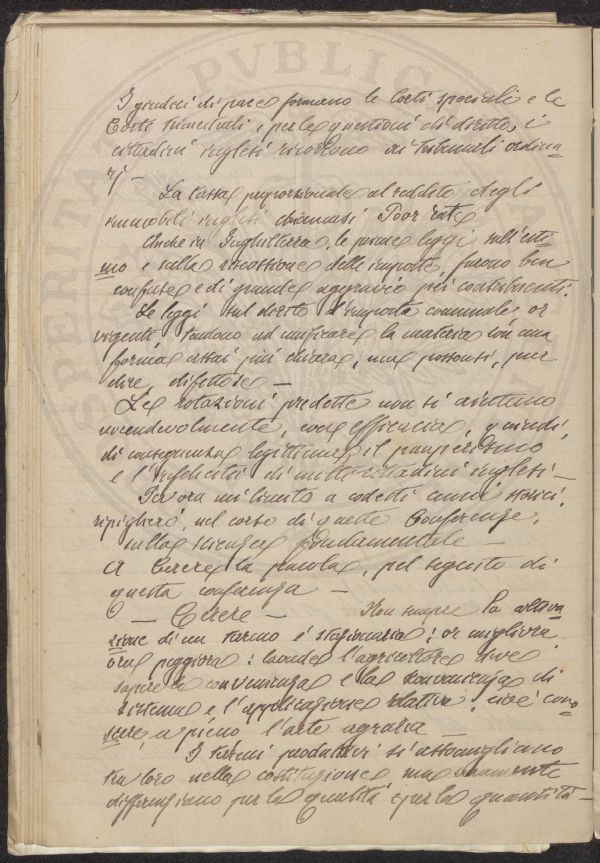 I giudici di pace formano le Corti speciali e le
Corti criminali, e per le questioni di diritto, i
cittadini inglesi ricorrono ai tribunali ordina-
rj —
La tassa proporzionale al reddito degli
immobili inglesi chiamasi Poor rate
Anche in Inghilterra, le prime leggi sull'esti-
mo e sulla riscossione delle imposte, furono ben
confuse e di grande aggravio pei contribuenti.
Le leggi sul diritto d'imposta comunale or
vigenti, tendono ad unificare la materia con una
forma assai più chiara, ma possonsi, pur
dire, difettose —
Le rotazioni predette non si aiutano
vicendevolmente, con efficacia, quindi,
di conseguenza legittima il pauperismo
e l'infelicità di mille cittadini inglesi —
Per ora mi limito a codesti cenni storici,
ripiglierò, nel corso di queste Conferenze,
sulla scienza fondamentale —
A Cerere la parola, pel seguito di
questa conferenza —
— Cerere — Non sempre la coltiva-
zione di un terreno è stazionaria: or migliora
ora peggiora: laonde l'agricoltore deve
sapere la convenienza e la sconvenienza di
sistema e l'applicazione relativa, cioè cono-
scere, a pieno l'arte agraria —
I terreni produttivi si assomigliano
tra loro nella costituzione ma
differiscano per la qualità e per la quantità —